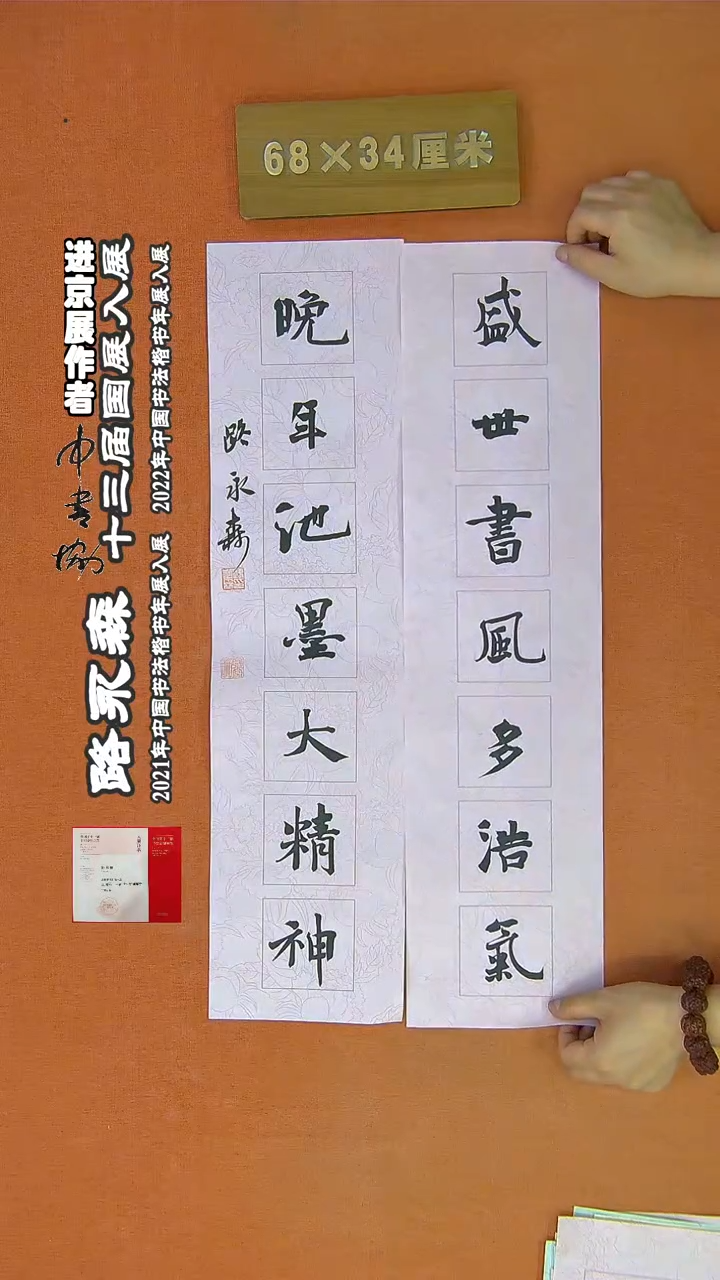 68×34厘米
盛世書風多浩氣
晚年池墨大精神
路永森
进京展作者
中书协
十三届国展入展
路永森
2021年中国书法楷书年展入展 2022年中国书法楷书年展入展